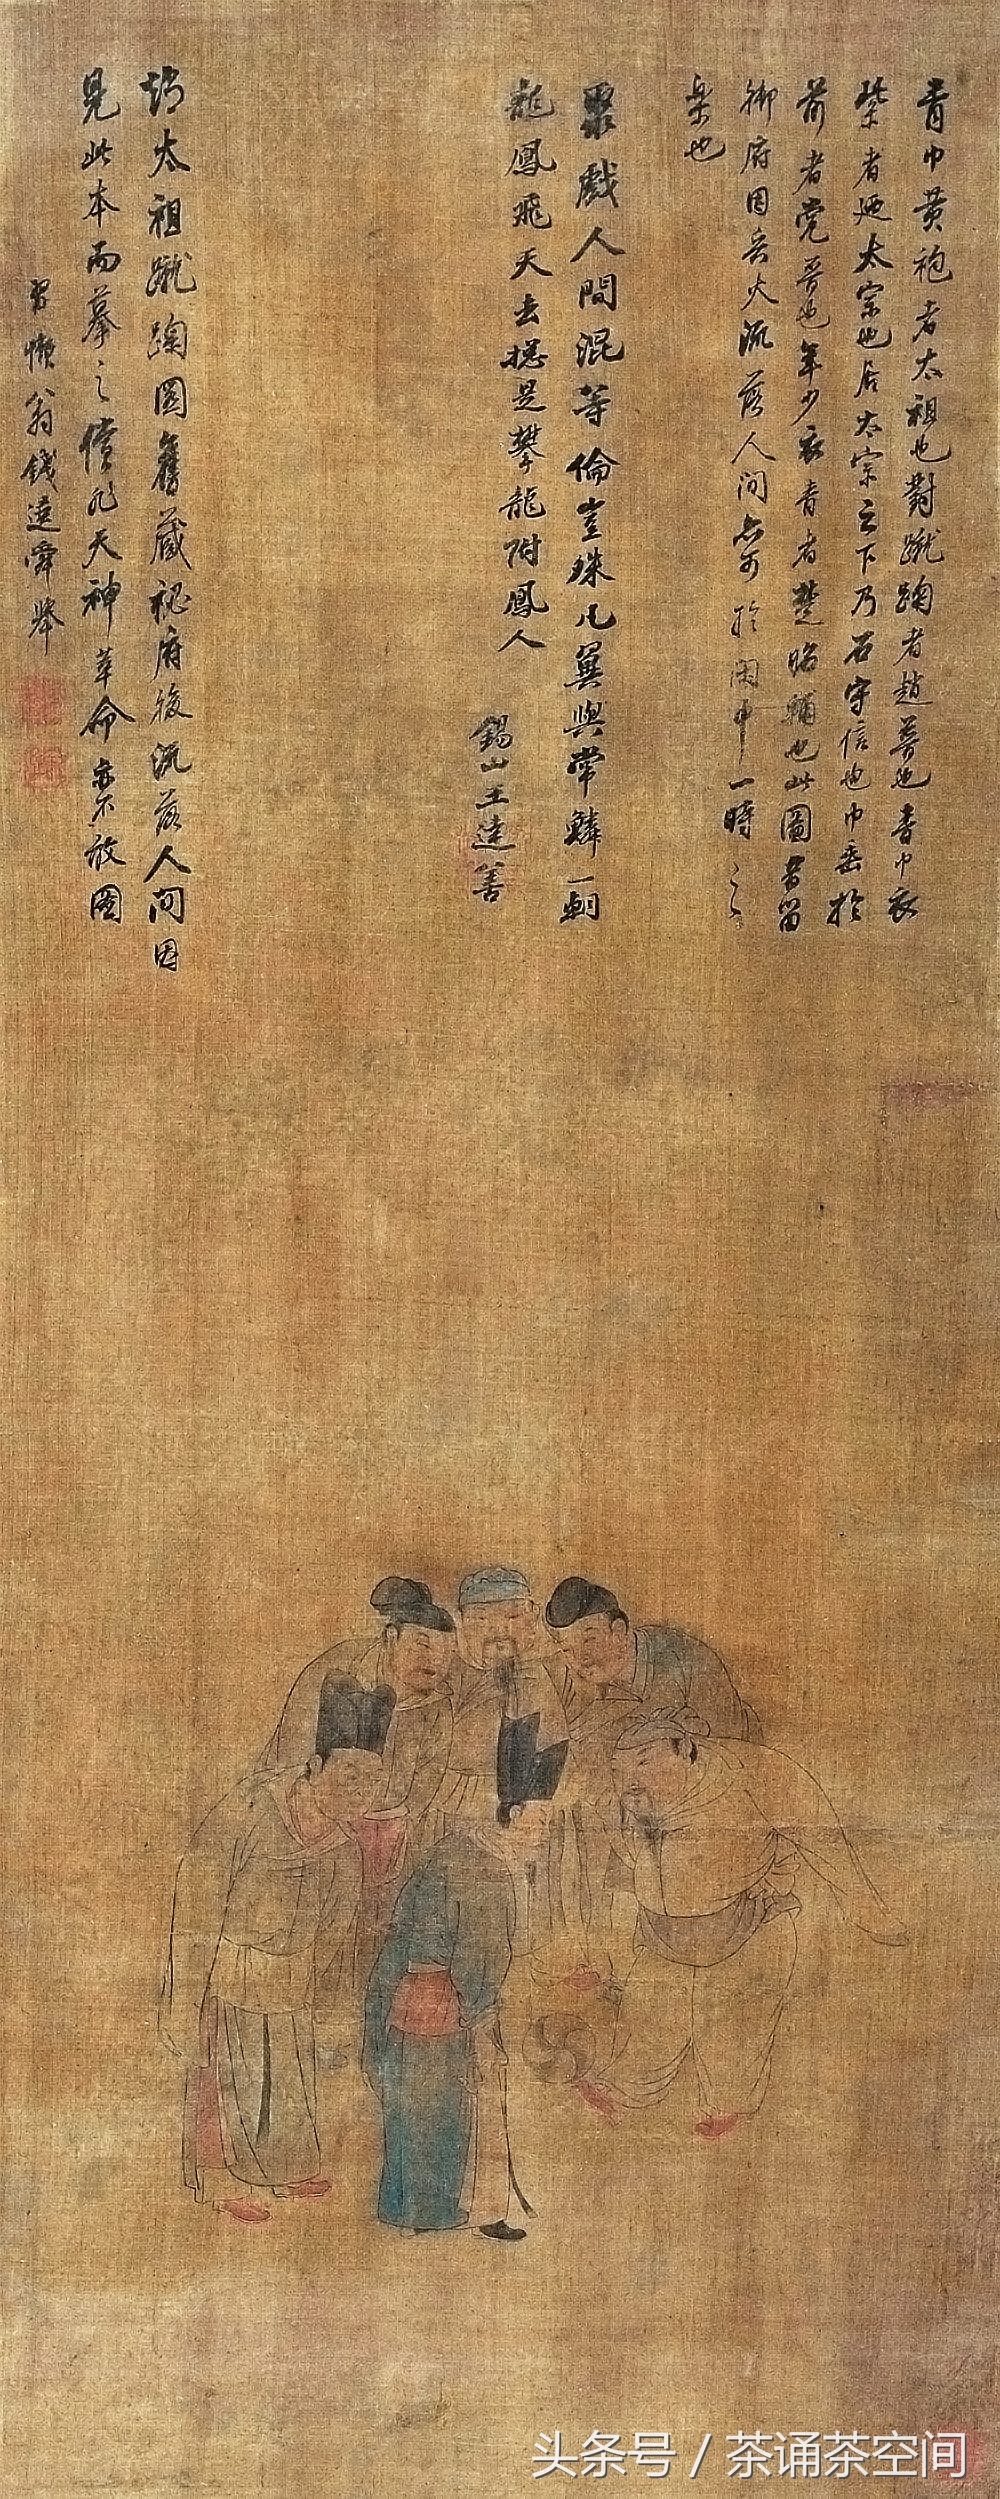 青巾黄袍者太祖也對蹴踘者趙普也青巾衣
紫者迺太宗也居太宗之下乃石守信也巾垂於
前者党晉也年少衣青者楚昭輔也此圖昔留
御府因兵火流落人间亦可於閑中一時之
樂也
聚戲人間混等倫豈殊凡翼與常鱗一朝
龍鳳飛天去總是攀龍附鳳人
錫山王達善
太祖蹴踘圖舊藏祕府後流落人间因
見此本而摹之儻非天神革命亦不敢圖
習懶翁錢選舜舉
头条号 / 茶诵茶空间